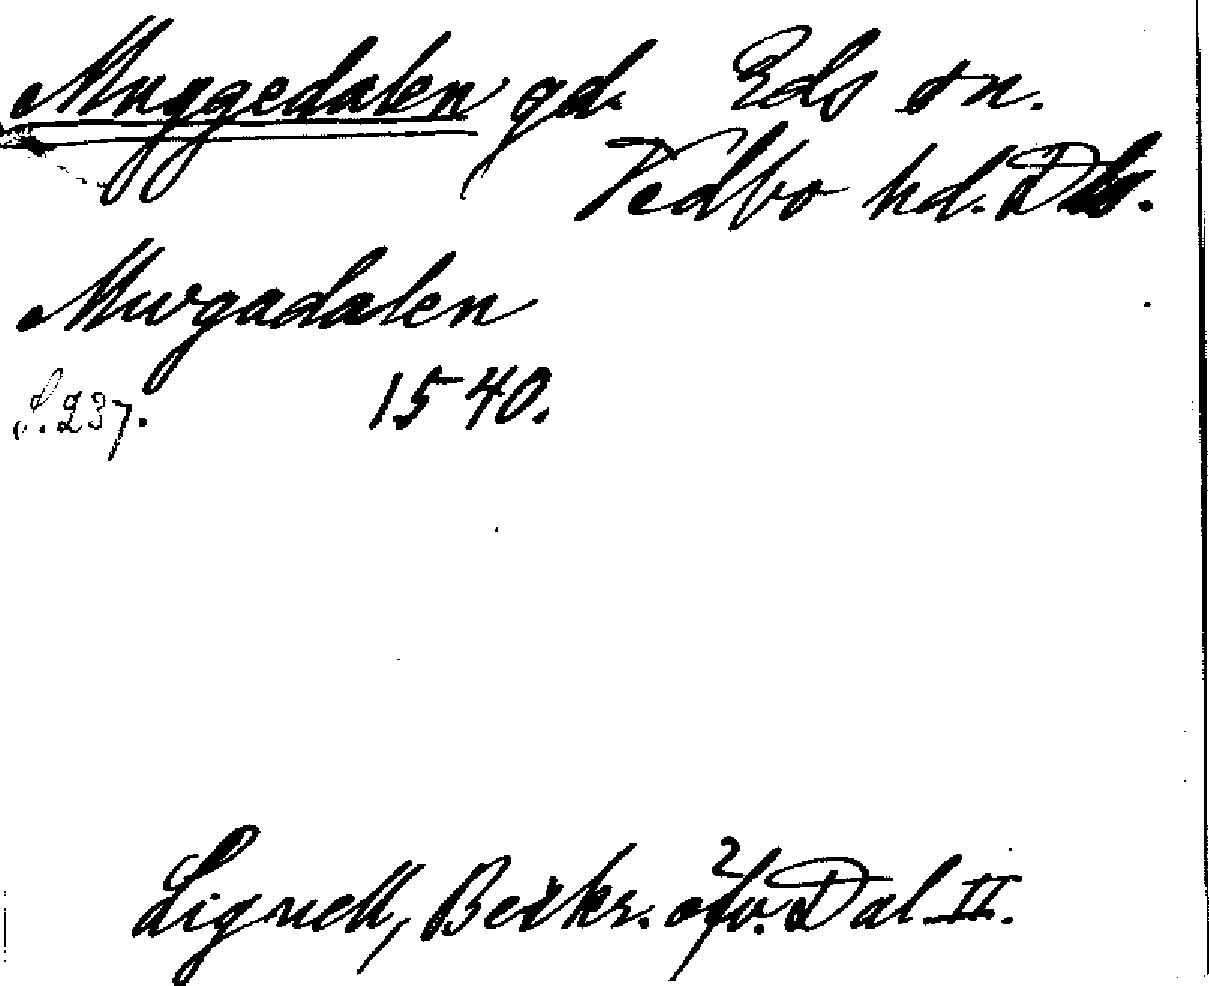 Muggedalen gd. Eds sn.
Vedbo hd. Dls.
Murgadalen
S. 237. 1540.
Lignell, Beskr. öfv. Dal II.